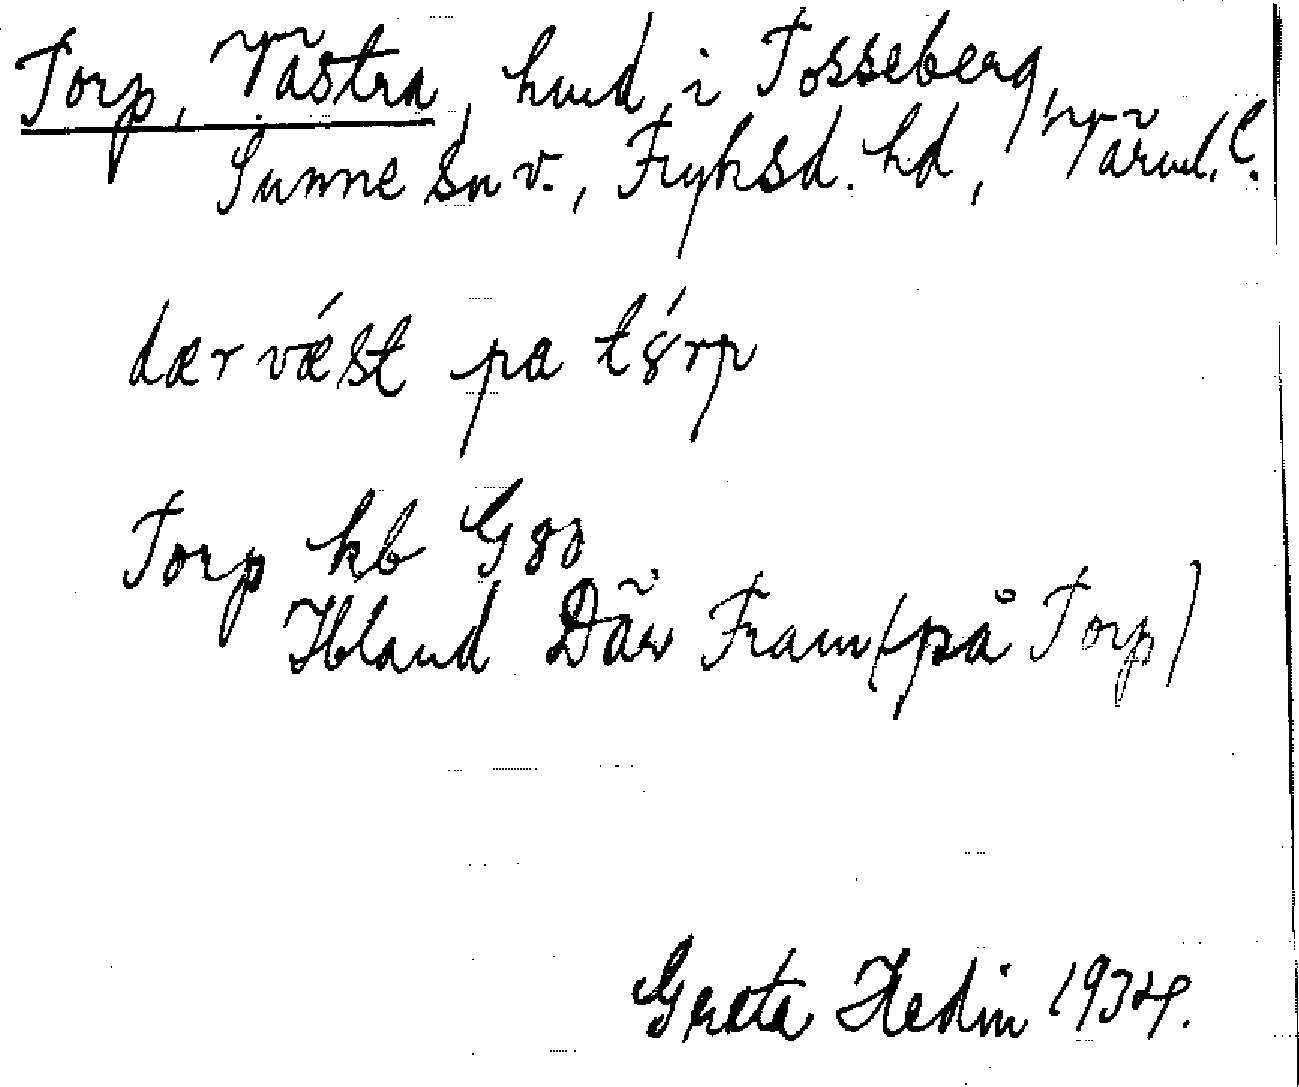 Torp, Västra, hmd, i Tosseberg,
Sunne sn v., Fryksd. hd, Värml. l.
dær vǽst pa tǿrp
Torp kb G 80
Ibland Där Fram (på Torp)
Greta Hedin 1934.